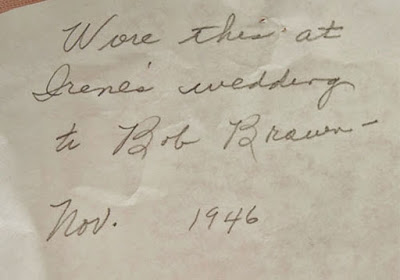 Wore this at
Irene's wedding
to Bob Brown-
Nov. 1946